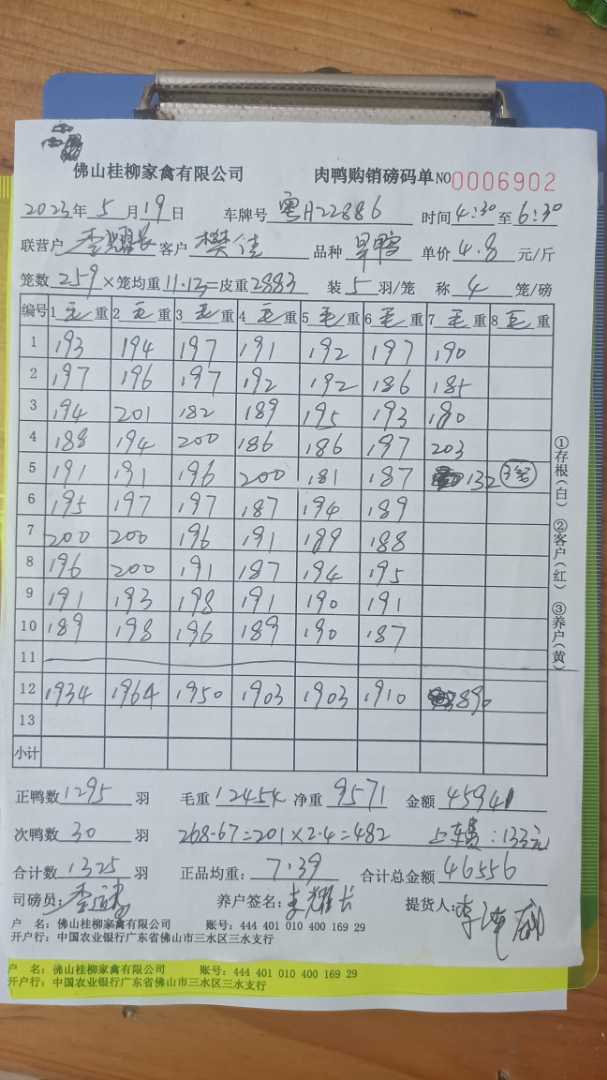 佛山桂柳家禽有限公司 肉鸭购销磅码单 NO 0006902
2023年 5 月 19 日 车牌号 粤H22886 时间 4:30 至 6:30
联营户 李耀长 客户 樊佳 品种 旱鸭 单价 4.8 元/斤
笼数 259 ×笼均重 11.13 =皮重 2883 装 5 羽/笼 称 4 笼/磅
编号 1 毛 重 2 毛 重 3 毛 重 4 毛 重 5 毛 重 6 毛 重 7 毛 重 8 毛 重
1 193 194 197 191 192 197 190
2 197 196 197 192 192 186 185
3 194 201 182 189 195 193 180
4 188 194 200 186 186 197 203
5 191 191 196 200 181 187 132 3笼
6 195 197 197 187 194 189
7 200 200 196 191 189 188
8 196 200 191 187 194 195
9 191 193 198 191 190 191
10 189 198 196 189 190 187
11
12 1934 1964 1950 1903 1903 1910 890
13
小计
正鸭数 1295 羽 毛重 12454 净重 9571 金额 45941
次鸭数 30 羽 268-67=201×2.4=482 上车费:133元
合计数 1325 羽 正品均重: 7.39 合计总金额 46556
司磅员: 养户签名: 李耀长 提货人:
户 名: 佛山桂柳家禽有限公司 账号: 444 401 010 400 169 29
开户行: 中国农业银行广东省佛山市三水区三水支行
户 名: 佛山桂柳家禽有限公司 账号: 444 401 010 400 169 29
开户行: 中国农业银行广东省佛山市三水区三水支行
①存根(白) ②客户(红) ③养户(黄)